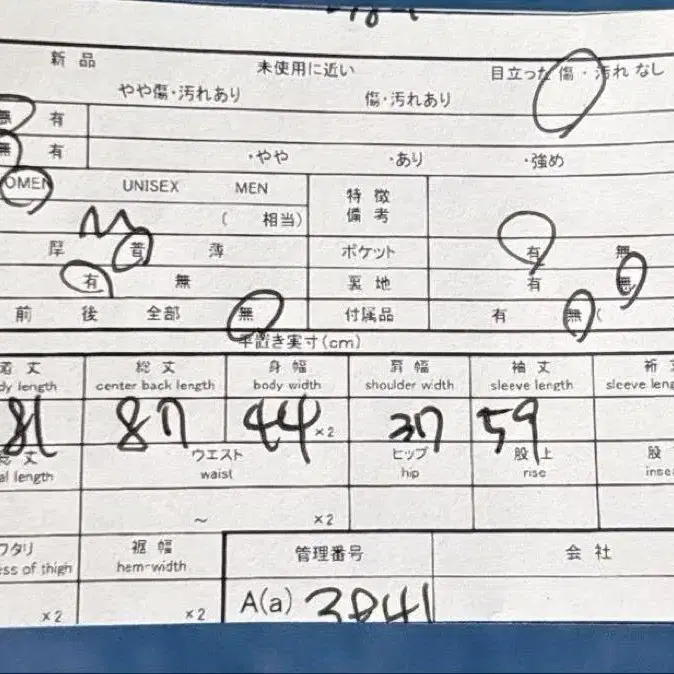 新品 未使用に近い 目立った傷・汚れなし
やや傷・汚れあり 傷・汚れあり
無 有
無 有 ・やや ・あり ・強め
OMEN UNISEX MEN 特徴
備考
M ( 相当)
厚 普 薄 ポケット 有 無
有 無 裏地 有 無
前 後 全部 無 付属品 有 無 (
平置き実寸(cm)
着丈 総丈 身幅 肩幅 袖丈 裄
dy length center back length body width shoulder width sleeve length sleeve leng
81 87 44 ×2 37 59
総丈 ウエスト ヒップ 股上 股
al length waist hip rise inse
～ ×2
ワタリ 裾幅 管理番号 会社
ess of thigh hem-width
×2 ×2 A(a) 3841